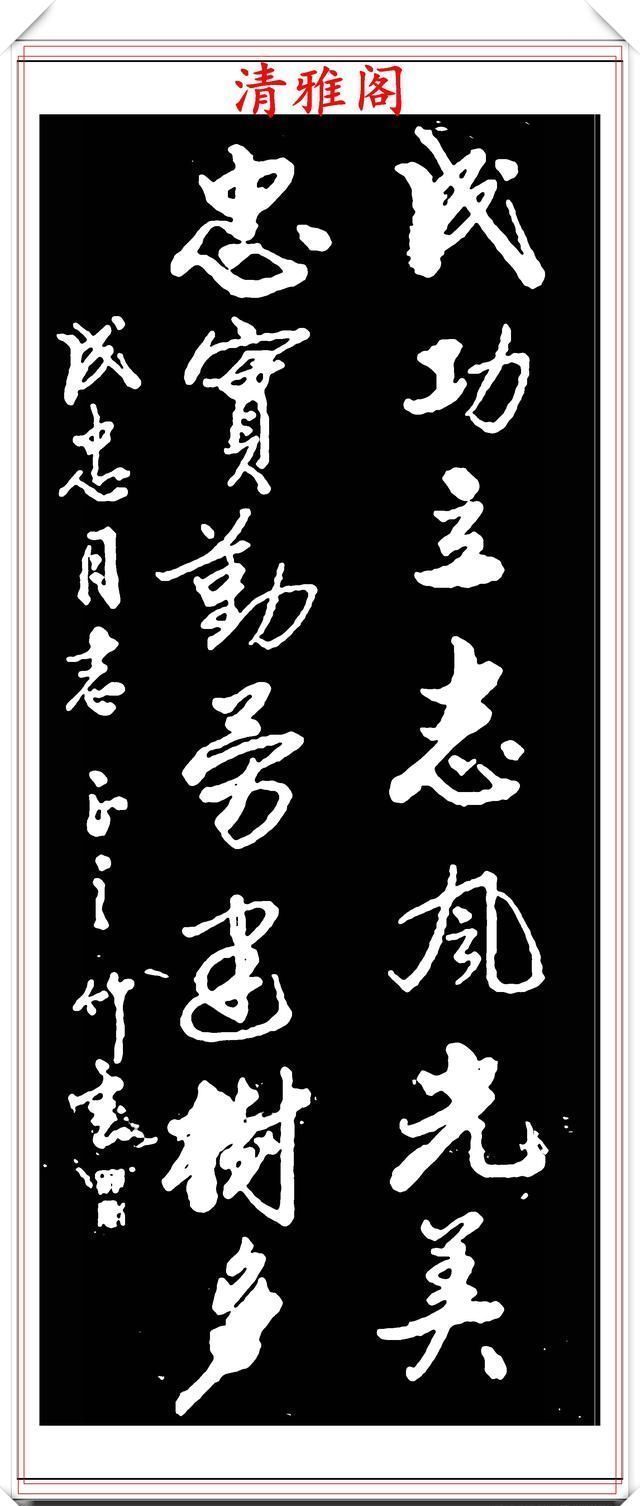 清雅阁
成功立志风光美
忠實勤劳建樹多
成忠同志 正之 竹虚